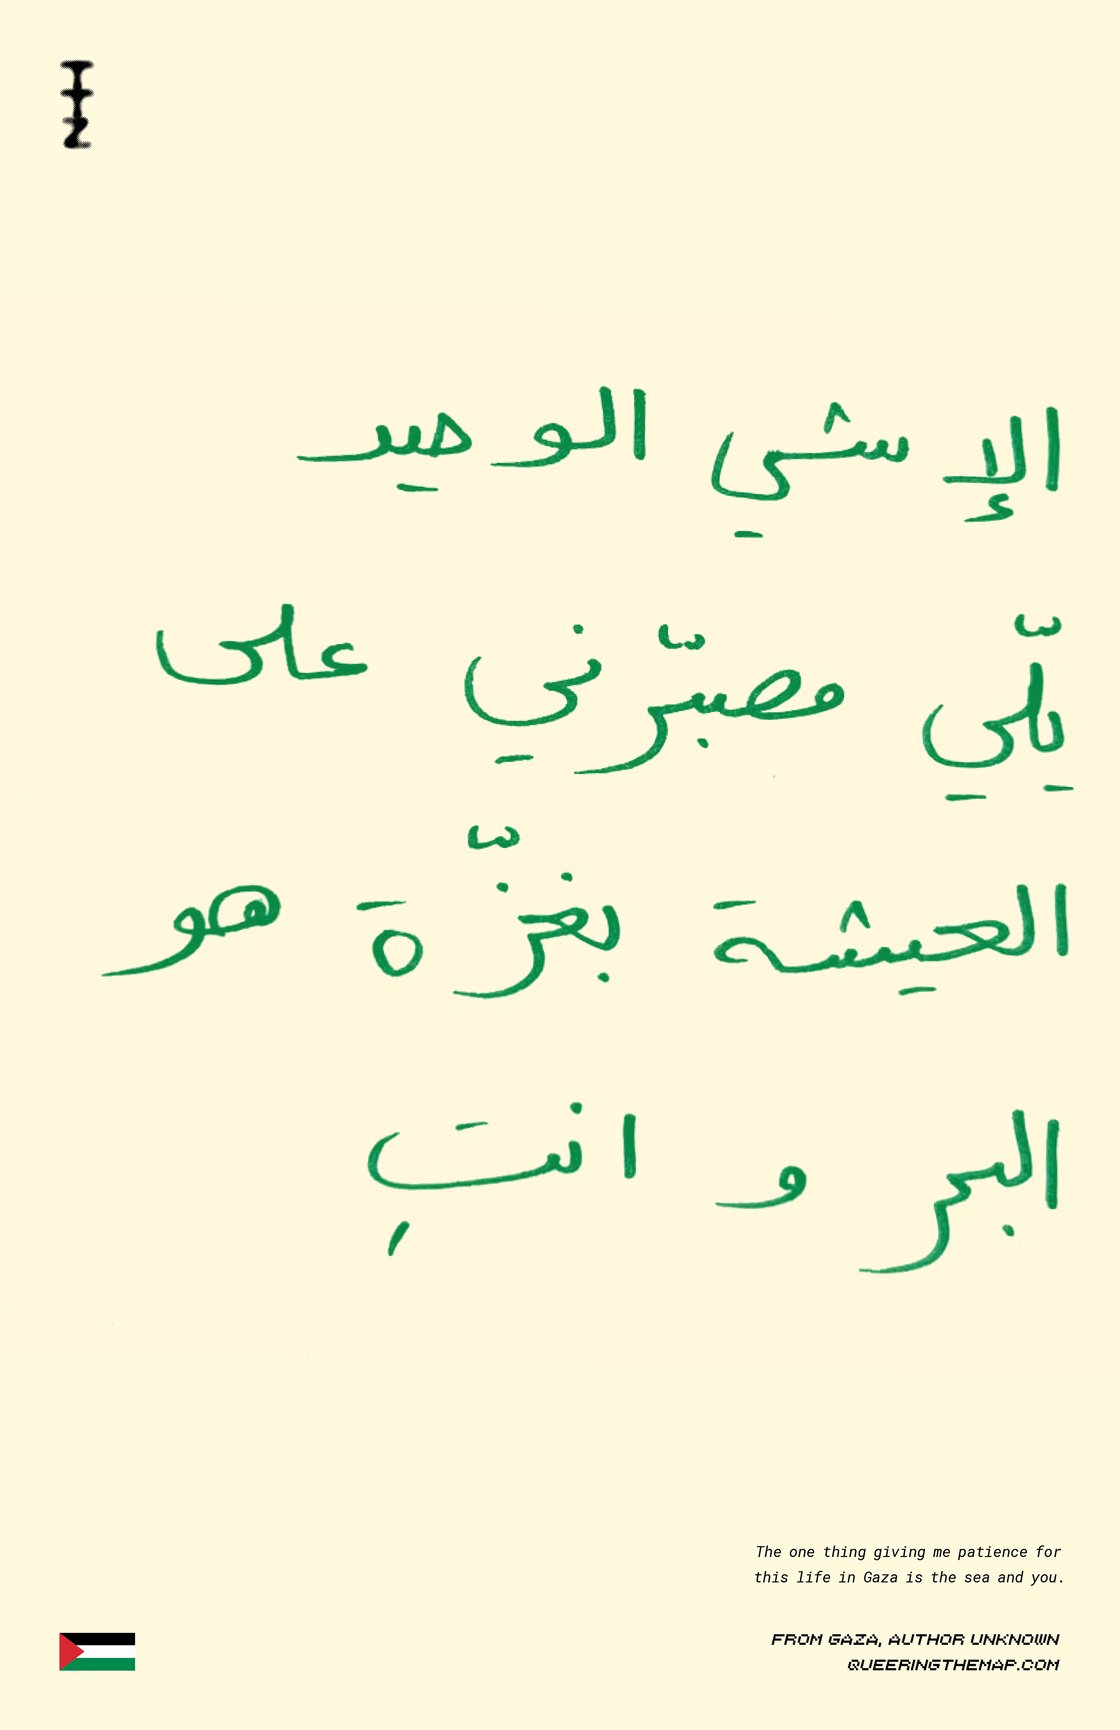 الإ شي الوحيد
يلّي مصبّرني على
العيشة بغزّة هو
البحر و انتِ
The one thing giving me patience for
this life in Gaza is the sea and you.
FROM GAZA, AUTHOR UNKNOWN
QUEERINGTHEMAP.COM